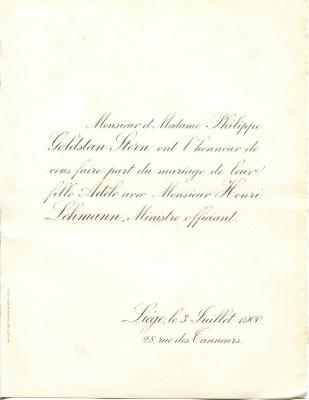 Monsieur et Madame Philippe
Goldstein Stern ont l'honneur de
vous faire part du mariage de leur
fille Adèle avec Monsieur Henri
Lehmann, Ministre officiant.
Liège, le 3 Juillet 1900.
28, rue des Tanneurs.